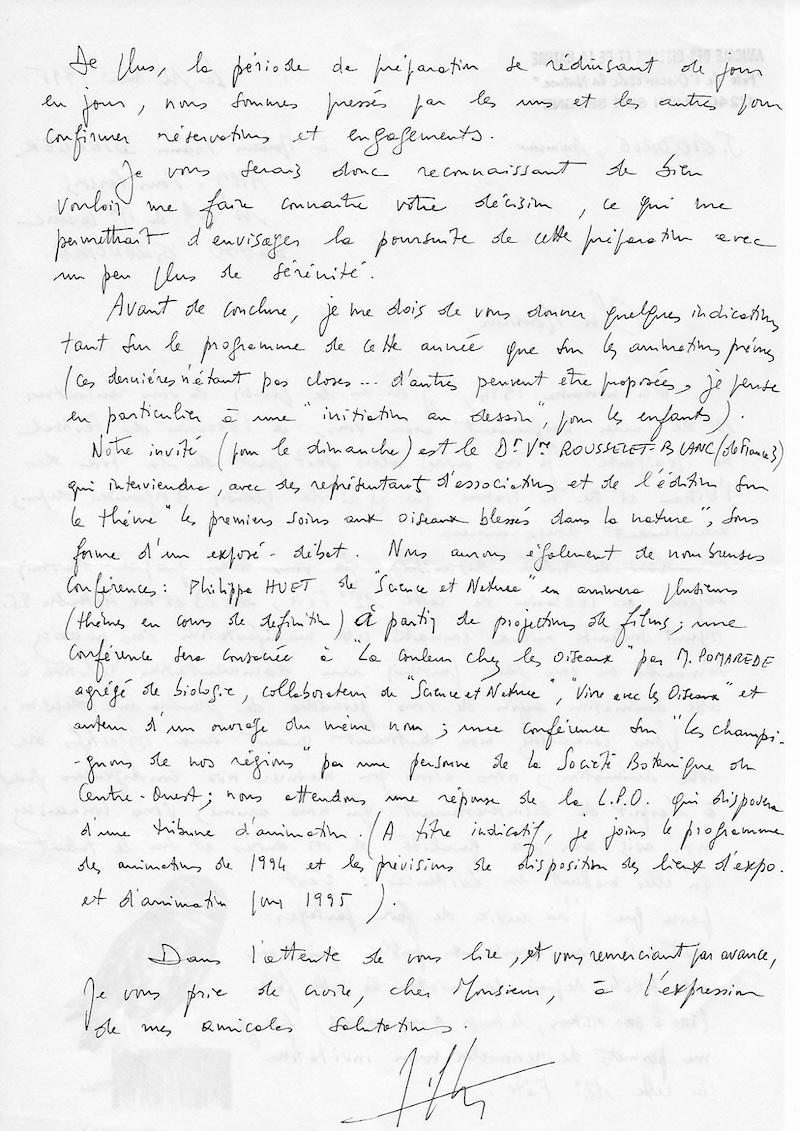 De plus, la période de préparation se réduisant de jour
en jour, nous sommes pressés par les uns et les autres pour
confirmer réservations et engagements.
Je vous serais donc reconnaissant de bien
vouloir me faire connaître votre décision, ce qui me
permettrait d'envisager la poursuite de cette préparation avec
un peu plus de sérénité.
Avant de conclure, je me dois de vous donner quelques indications
tant sur le programme de cette année que sur les animations prévues
(ces dernières n'étant pas closes... d'autres peuvent être proposées, je pense
en particulier à une "initiation au dessin", pour les enfants).
Notre invité (pour le dimanche) est le Dr Vre ROUSSELET-BLANC (de France 3)
qui interviendra, avec des représentant d'associations et de l'édition sur
le thème "les premiers soins aux oiseaux blessés dans la nature", sous
forme d'un exposé-débat. Nous aurons également de nombreuses
conférences: Philippe HUET de "Science et Nature" en animera plusieurs
(thèmes en cours de définition) à partir de projections de films; une
conférence sera consacrée à "La couleur chez les oiseaux" par M. POMAREDE
agrégé de biologie, collaborateur de "Science et Nature", "Vivre avec les Oiseaux" et
auteur d'un ouvrage du même nom; une conférence sur "les champi-
-gnons de nos régions" par une personne de la Société Botanique du
Centre-Ouest; nous attendons une réponse de la L.P.O. qui disposera
d'une tribune d'animation. (A titre indicatif, je joins le programme
des animations de 1994 et les prévisions de disposition des lieux d'expo.
et d'animation pour 1995).
Dans l'attente de vous lire, et vous remerciant par avance,
Je vous prie de croire, cher Monsieur, à l'expression
de mes amicales salutations.